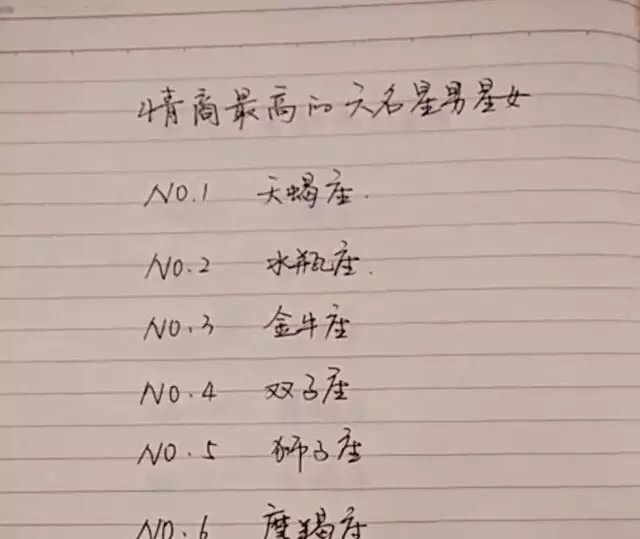 情商最高的六名星男星女
NO.1 天蝎座.
NO.2 水瓶座.
NO.3 金牛座
NO.4 双子座
NO.5 狮子座
NO.6 摩羯座